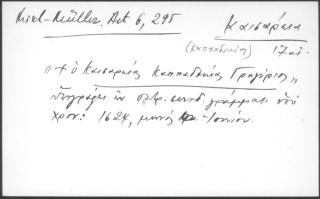 Mikl-Müller. Act 6, 295
Καισάρεια
(Καππαδοκίας) 17 αἰ.
"+ ὁ Καισαρείας Καππαδοκίας Γρηγόριος"
ὑπογράφει ἐν πατρ. συνοδ. γράμματι ὑπὸ
χρον: 1624, μηνὸς Ἰουνίου.